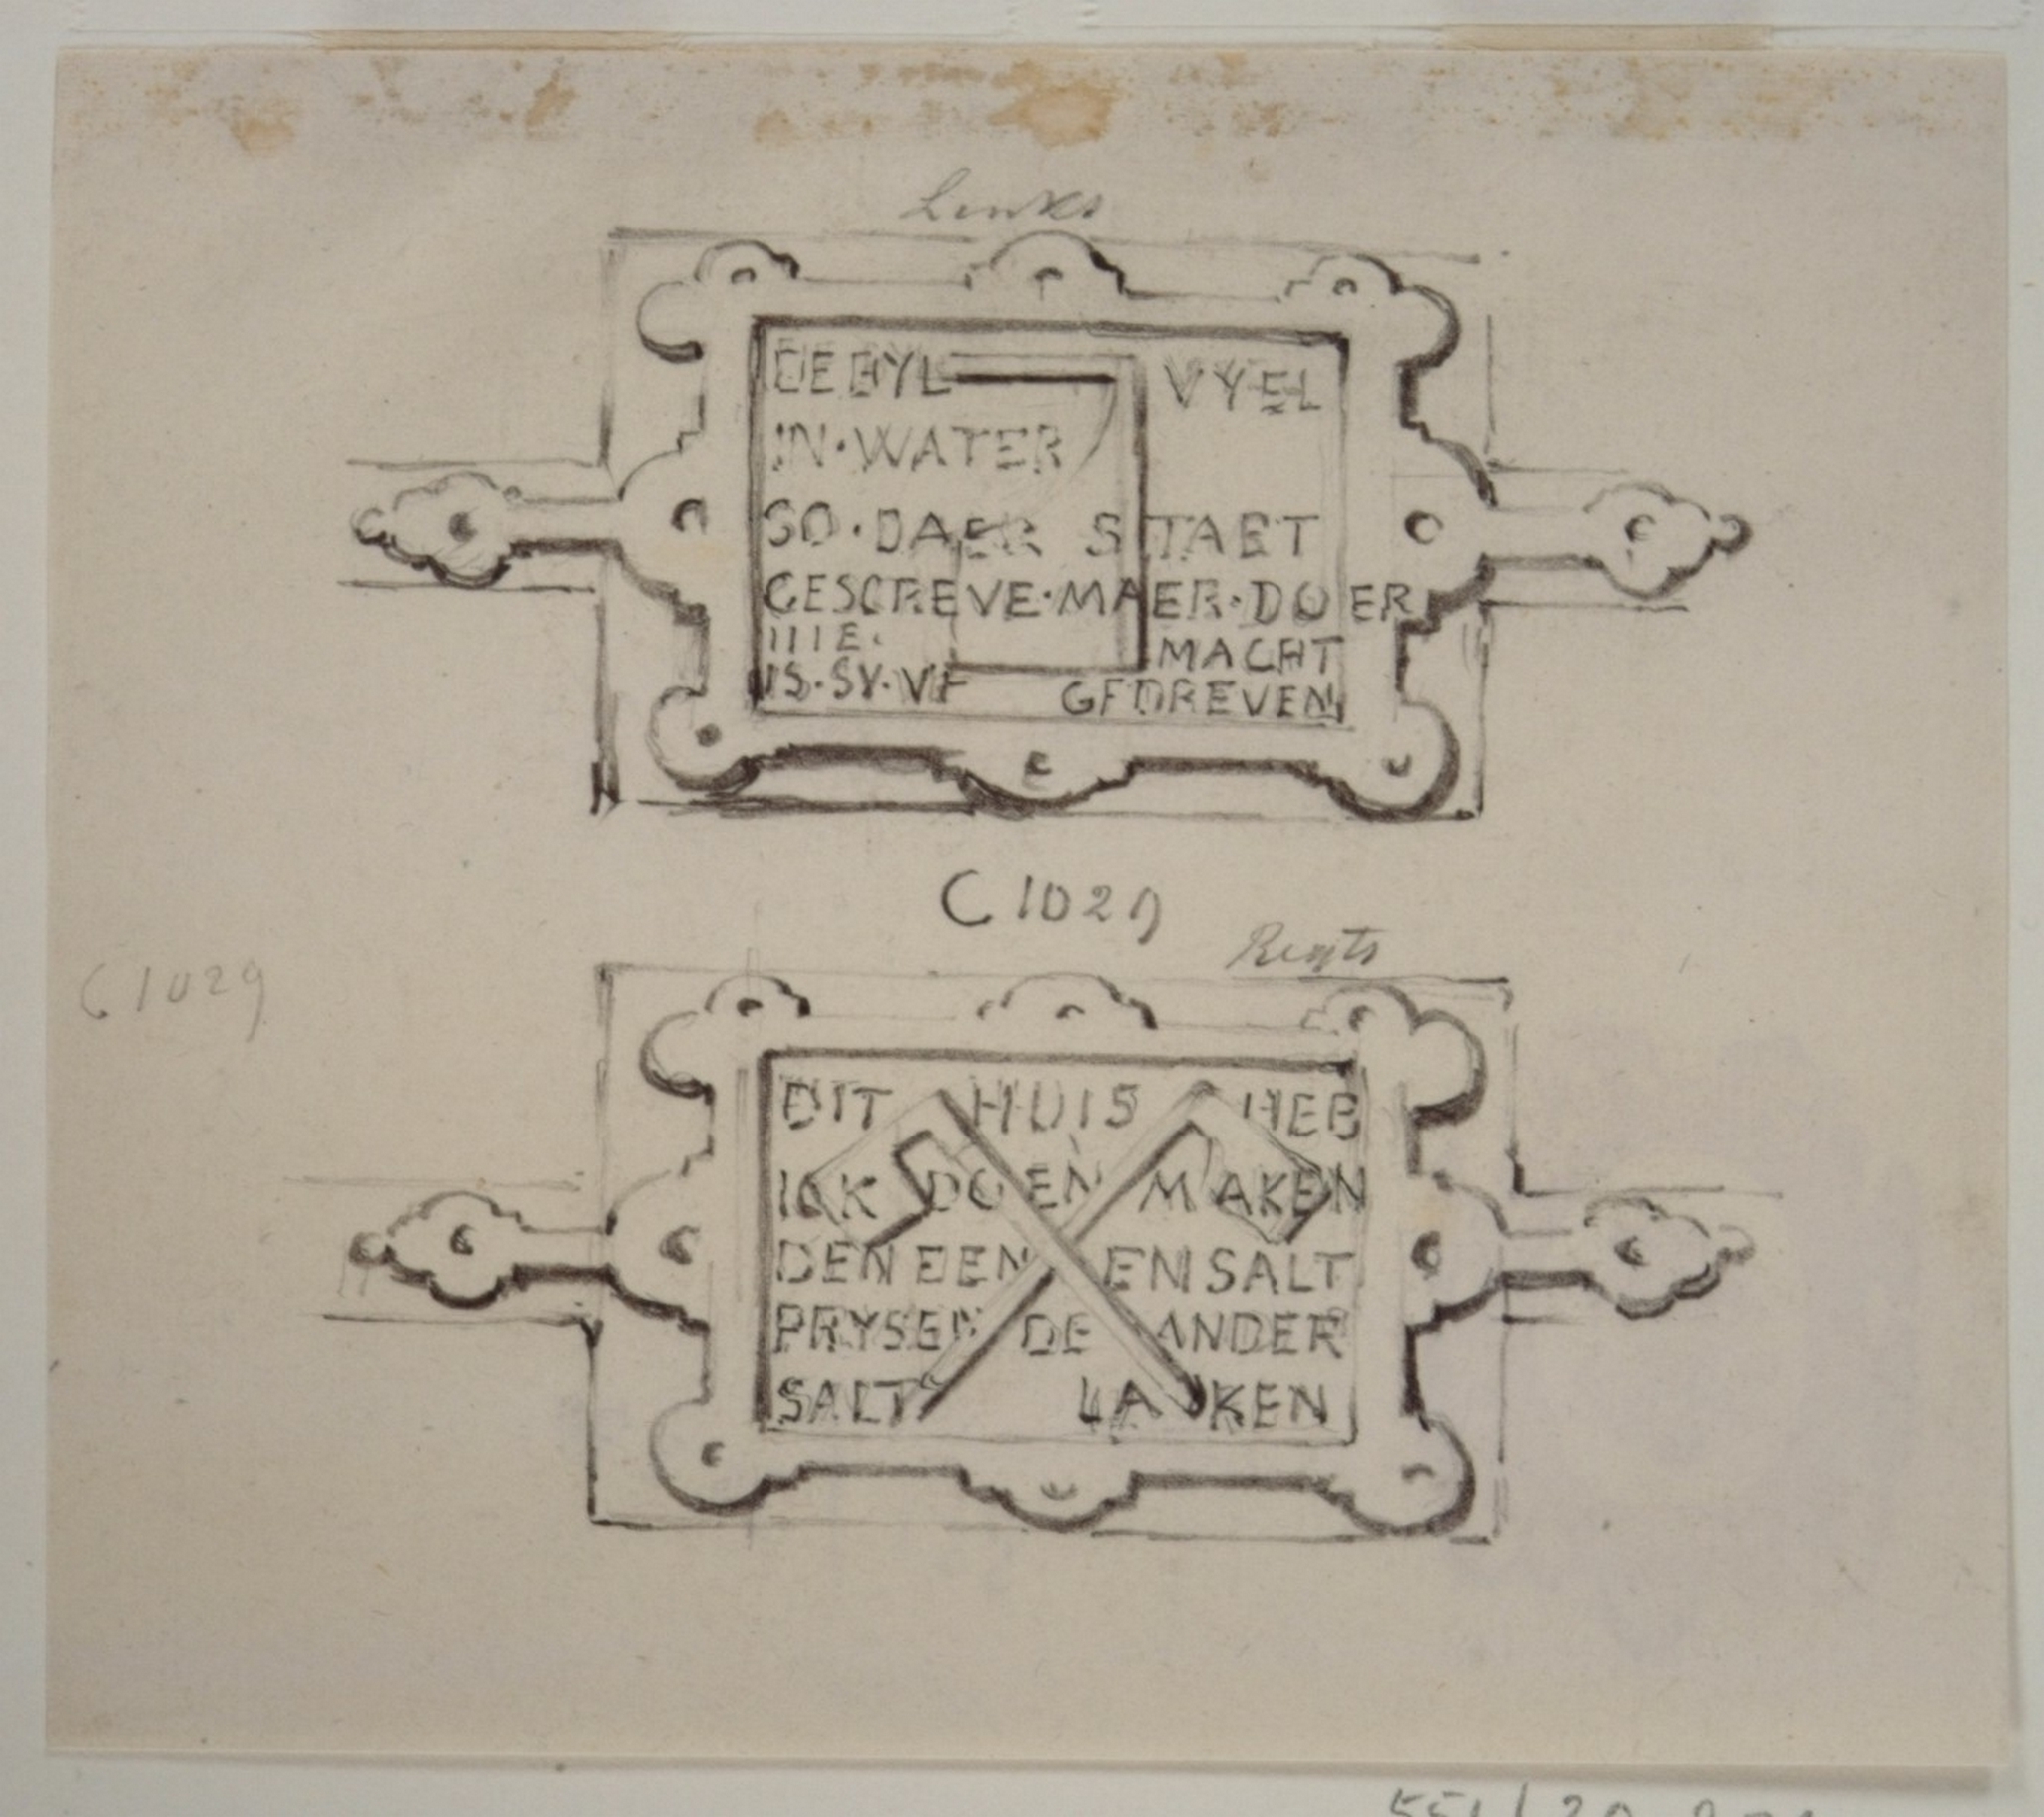 Links
DE BYL VYEL
IN·WATER
SO·DAER STAET
GESCREVE·MAER·DOER
IIIE· MACHT
IS·SY·VE GEDREVEN
C 1029
Regts
C 1029
DIT HUIS HEB
ICK DOEN MAKEN
DEN EEN EN SALT
PRYSEN DE ANDER
SALT LAKEN